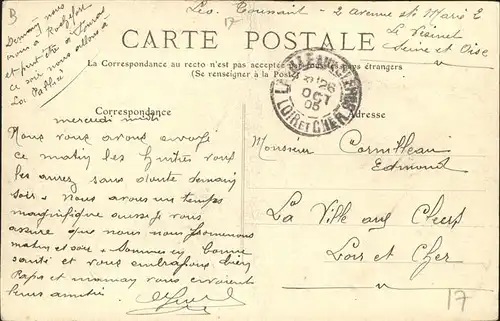 Léo. Toussaint - 2 avenue ste Marie E
Le Vésinet
Seine et Oise
B
17
Demain nous
irons à Rochefort
et peut-être à
ce soir nous allons à
CARTE POSTALE
La Correspondance au recto n'est pas acceptée par pays étrangers
(Se renseigner à la Poste)
LA VILLE AUX CLERCS
26
OCT
05
LOIR ET CHER
Correspondance
Adresse
mercredi midi
Nous vous avons envoyé
ce matin les huîtres vous
les aurez sans doute demain
soir - nous avons un temps
magnifique aussi je vous
assure que nous nous promenons
matin et soir - Sommes en bonne
santé et vous embrassons bien
Papa et maman vous envoient
leurs amitiés
Monsieur Cornilleau
Edmond
La Ville aux Clercs
Loir et Cher
17